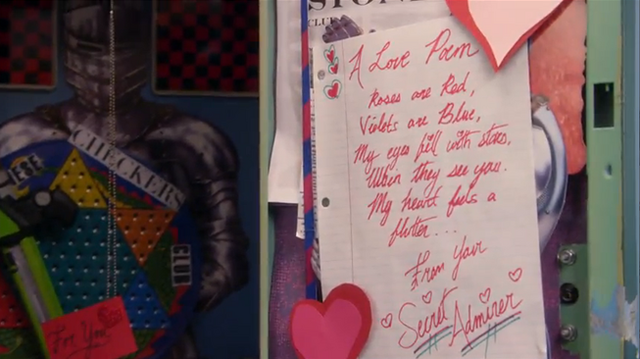 ESE
CHECKERS
CLUB
For You
STON
CLU
A Love Poem
Roses are Red,
Violets are Blue,
My eyes fill with stars,
When they see you.
My heart feels a
flutter...
From your
Secret Admirer